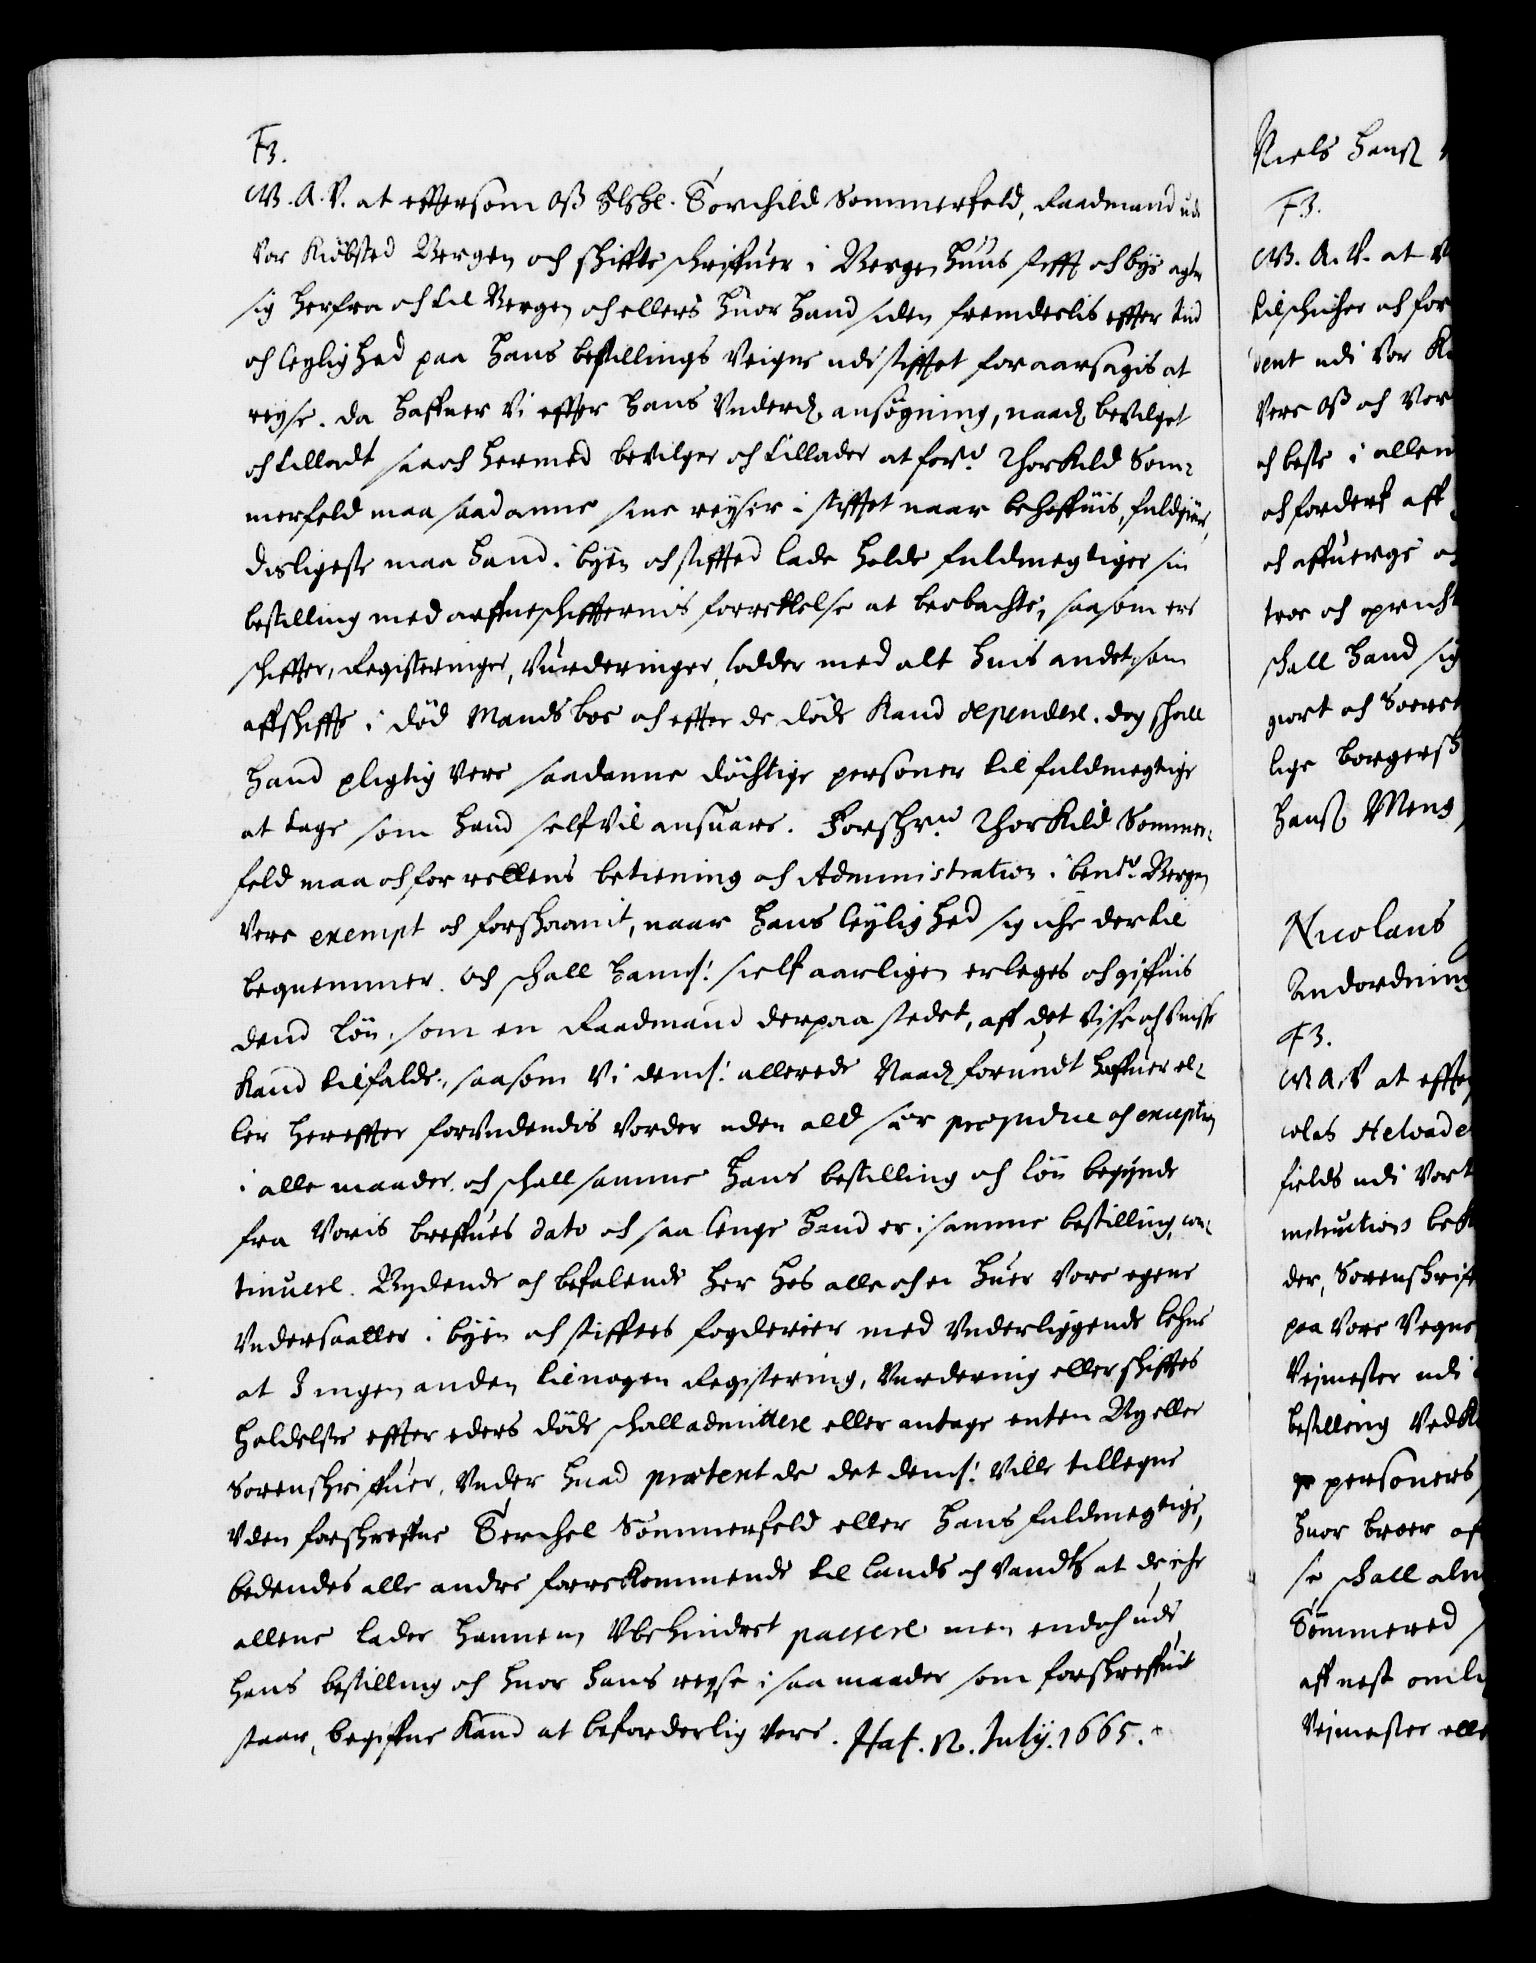 F3.
W. A. V. at effersom Oß Torchild Sommerfeld, Raadmand udi
Vor Kiöbsted Bergen och skiffte schriffuer i Bergenhuus stifft och bys agter
sig herfra och til Bergen och ellers huor hand siden fremdelis effter tid
och leylighed paa hans bestillings Veigne udi stifftet foraarsagis at
reyse. da haffuer Vi effter hans Underd. ansögning, naad. bevilget
och tilladt saa och hermed bevilger och tillader at forne Thorkild Som-
merfeld maa saadanne sine reyser i stifftet naar behoffuis, fuldgiöre,
disligeste maa hand i byen och stifftet lade holde fuldmegtiger sin
bestilling med arffueschiffternis forrettelse at beobachte, saasom ere
schiffter, Registeringer, Vurderinger, lodder med alt huis andet som
affskiffte i död Mands boe och effter de döde Kand dependere. dog schall
hand pligtig Vere saadanne döchtige personer til fuldmegtige
at tage som hand self Vil ansuare. Forschrne Thorkild Sommer-
feld maa och for rettens betiening och Administration i bemte Bergen
Vere exempt och forskaanit, naar hans leylighed sig iche dertil
beqvemmer. Och schall hannem self aarligen erleges och giffuis
dend lön, som en Raadmand derpaa stedet, aff det Visse och Uvisse
Kand tilfalde, saasom Vi dennem allerede Naad. forundt haffuer el-
ler hereffter forundendis Vorder uden all præjudice och exception
i alle maader. och schall samme hans bestilling och lön begynde
fra Voris breffues dato och saa lenge hand er i samme bestilling, con-
tinuere. Bydende och befalende her hos alle och en huer Vore egene
Undersaatter i byen och stifftes fogderier med Underliggende lehne
at I ingen anden til nogen Registering, Vurdering eller skifftes
holdelse effter eders döde schall admittere eller antage enten By eller
Sorenschriffuer, Under huad prætext de det dennem Ville tillegne
Uden forschreffne Terchel Sommerfeld eller hans fuldmegtige,
bedendes alle andre forrekommende til lands och Vands at de iche
allene lader hannem Ubehindret passere men endoch udi
hans bestilling och huor hans reyse i saa maader som forschreffuit
staar, begiffue Kand at beforderlig Vere. Haf. 12. Julij. 1665.
Niels hanß
F3.
W. A. V. at
tilschicher och for
dent udi Vor
Vere Oß och Vor
och beste i allen
och fordert aff
och affuerge
troe och
schall hand sig
giort och Soeret
lige borgersch
hanß Meng
Nicolaus
Andordning
F3.
W A. V at effter
colas Helvade
fields udi Vort
instruction
der, Sorenskriff
paa Vore Vegne
Vejmester udi
bestilling Ved
personers
huor broer
se schall
Sömmered
aff nest
Vejmester eller